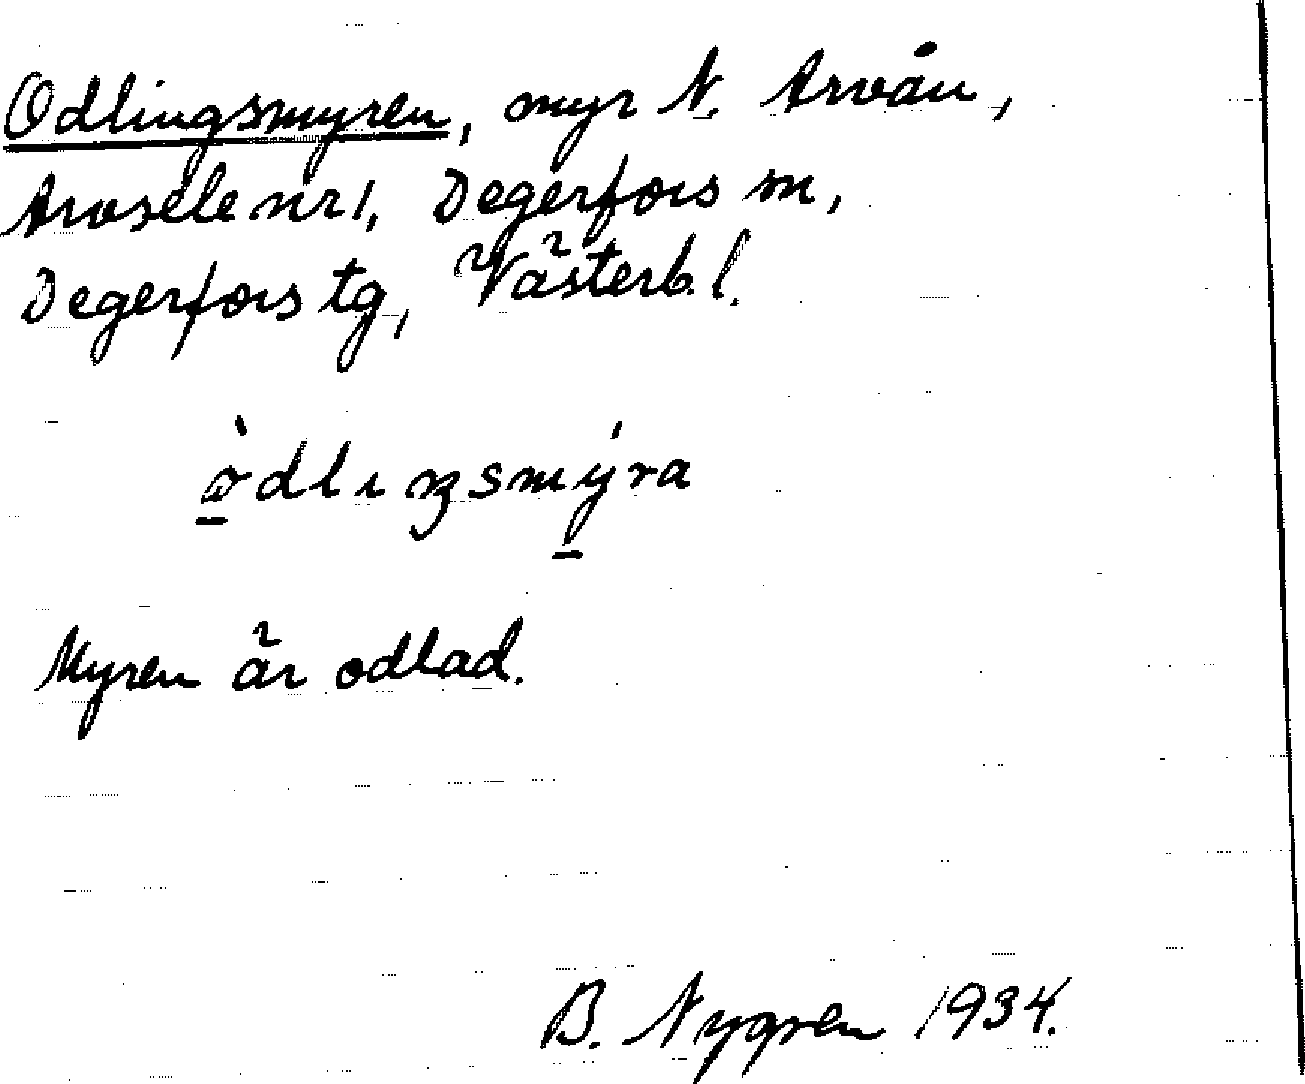 Odlingsmyren, myr N. Arvån,
Arvsele nr 1, Degerfors sn,
Degerfors tg, Västerb. l.
òdlıŋsmýra
Myren är odlad.
B. Nygren 1934.